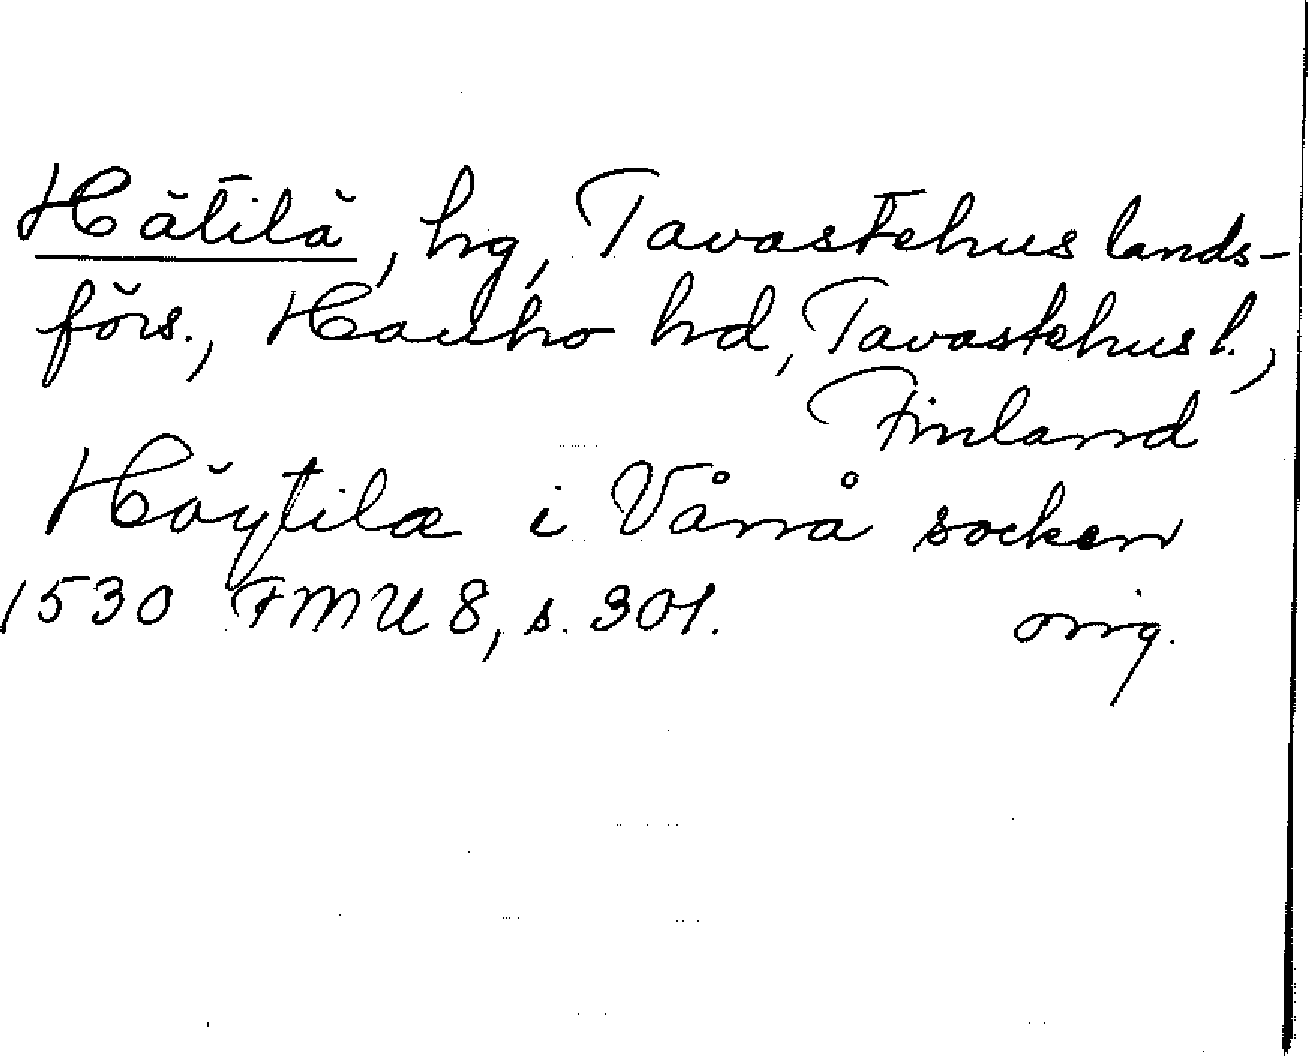 Hätilä, hg, Tavastehus lands-
förs., Hauho hd, Tavastehus l.,
Finland
Höytila i Vånå socken
1530 FMU 8, s. 301. orig.